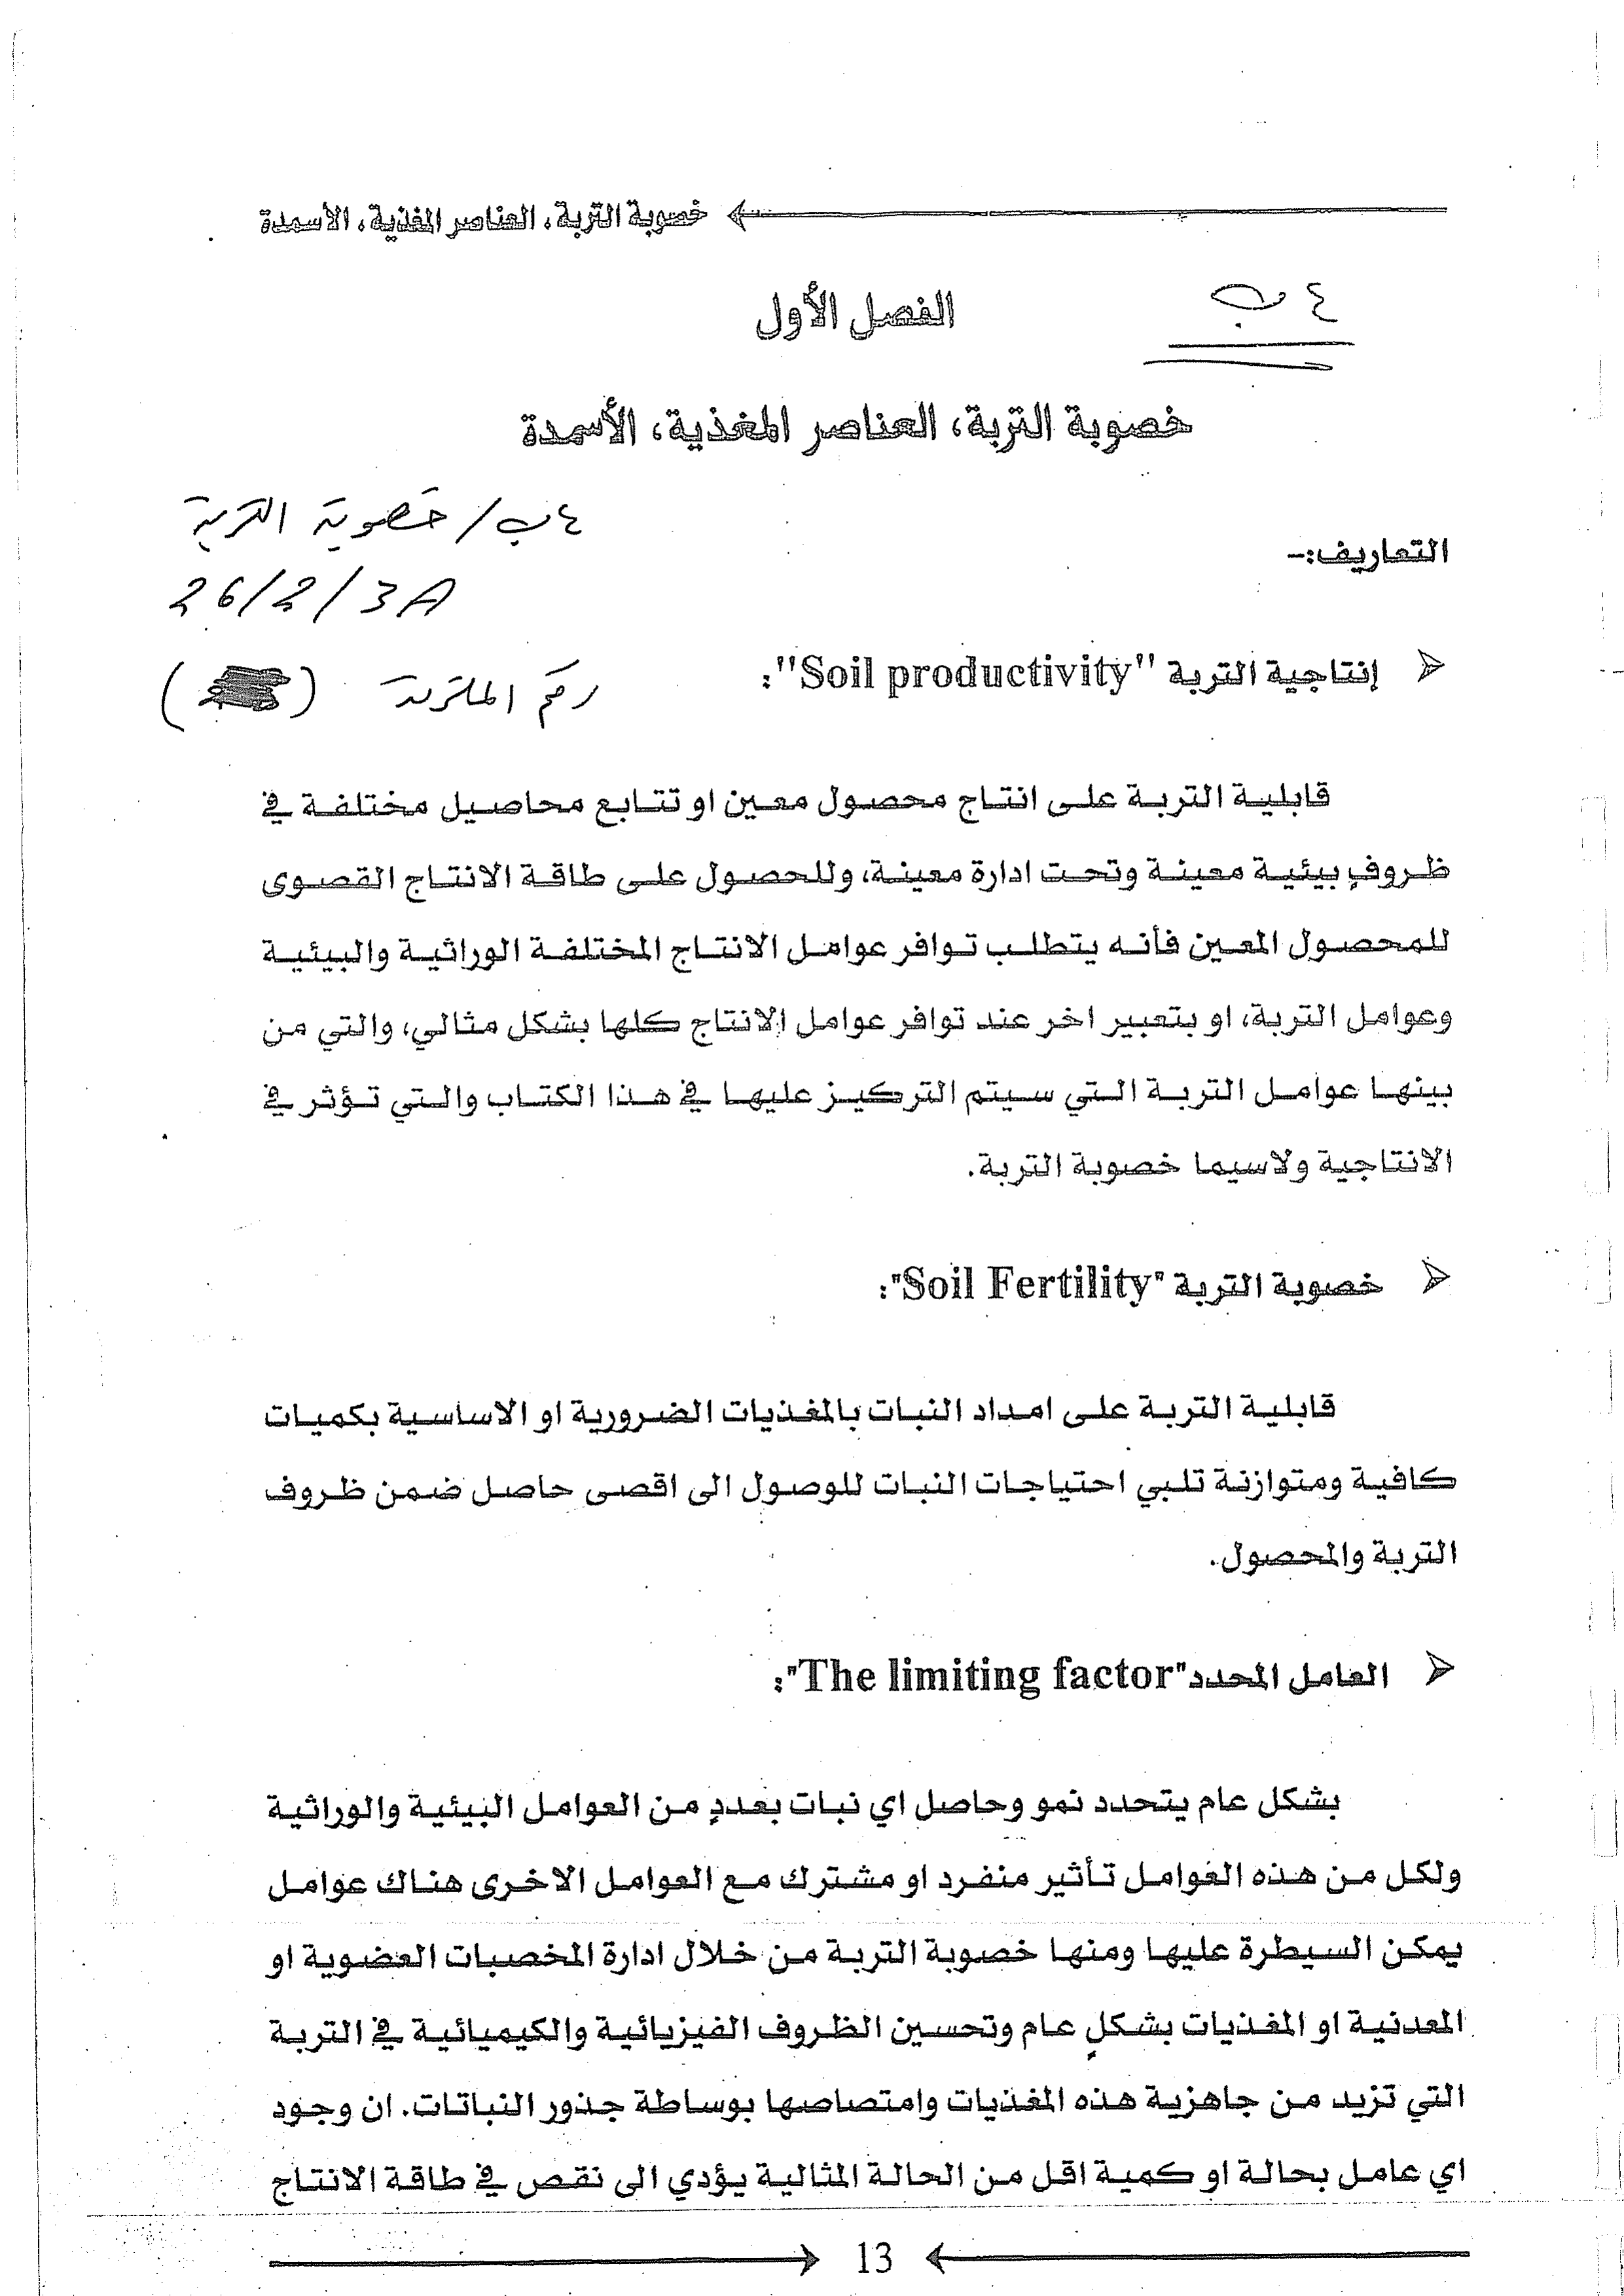 خصوبة التربة، العناصر المغذية، الأسمدة
٤ ب
الفصل الأول
خصوبة التربة، العناصر المغذية، الأسمدة
٤ب / خصوبة التربة
26/2/3A
التعاريف:-
رقم الملزمة ( )
إنتاجية التربة "Soil productivity":
قابلية التربة على انتاج محصول معين او تتابع محاصيل مختلفة في
ظروفٍ بيئية معينة وتحت ادارة معينة، وللحصول على طاقة الانتاج القصوى
للمحصول المعين فأنه يتطلب توافر عوامل الانتاج المختلفة الوراثية والبيئية
وعوامل التربة، او بتعبير اخر عند توافر عوامل الانتاج كلها بشكل مثالي، والتي من
بينها عوامل التربة التي سيتم التركيز عليها في هذا الكتاب والتي تؤثر في
الانتاجية ولاسيما خصوبة التربة.
خصوبة التربة "Soil Fertility":
قابلية التربة على امداد النبات بالمغذيات الضرورية او الاساسية بكميات
كافية ومتوازنة تلبي احتياجات النبات للوصول الى اقصى حاصل ضمن ظروف
التربة والمحصول.
العامل المحدد"The limiting factor":
بشكل عام يتحدد نمو وحاصل اي نبات بعددٍ من العوامل البيئية والوراثية
ولكل من هذه العوامل تأثير منفرد او مشترك مع العوامل الاخرى هناك عوامل
يمكن السيطرة عليها ومنها خصوبة التربة من خلال ادارة المخصبات العضوية او
المعدنية او المغذيات بشكلٍ عام وتحسين الظروف الفيزيائية والكيميائية في التربة
التي تزيد من جاهزية هذه المغذيات وامتصاصها بوساطة جذور النباتات. ان وجود
اي عامل بحالة او كمية اقل من الحالة المثالية يؤدي الى نقص في طاقة الانتاج
13